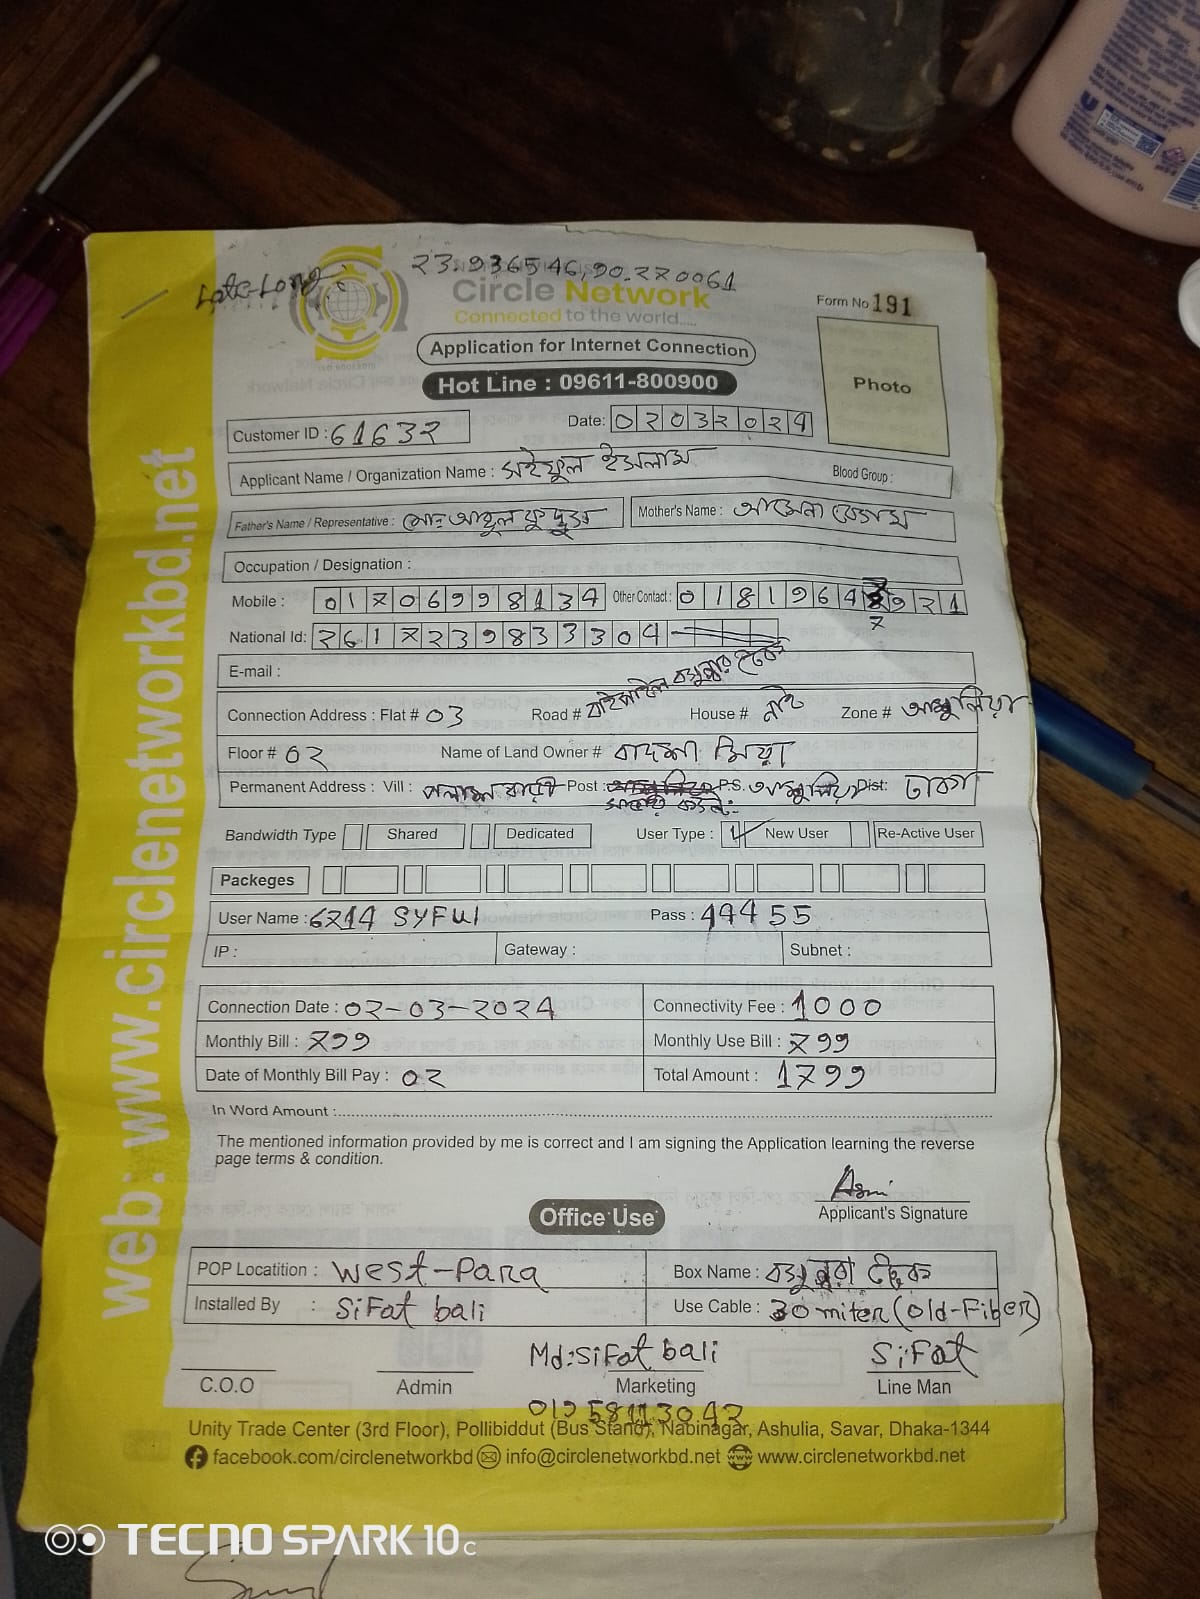 Late-Long: 23.936546,90.270061
Circle Network
Connected to the world.....
ISO 9001:2015
Form No 191
Application for Internet Connection
Photo
Hot Line : 09611-800900
Customer ID : 61632
Date: 02032024
Applicant Name / Organization Name : সাইফুল ইসলাম
Blood Group :
Father's Name / Representative : মোঃ আব্দুল কুদ্দুস
Mother's Name : আমেনা বেগম
Occupation / Designation :
Mobile : 01706998134
Other Contact : 01819647921
National Id: 2617239833304
E-mail :
Connection Address : Flat # 03 Road # বাইপাইল বসুন্ধরা টেক House # নাই Zone # আশুলিয়া
Floor # 02 Name of Land Owner # বাদশা মিয়া
Permanent Address : Vill : পলাশবাড়ী Post : P.S. আশুলিয়া Dist: ঢাকা
Bandwidth Type Shared Dedicated User Type : New User Re-Active User
Packeges
User Name : 6214 SYFUl Pass : 44455
IP : Gateway : Subnet :
Connection Date : 02-03-2024 Connectivity Fee : 1000
Monthly Bill : 799 Monthly Use Bill : 799
Date of Monthly Bill Pay : 02 Total Amount : 1799
In Word Amount :
The mentioned information provided by me is correct and I am signing the Application learning the reverse
page terms & condition.
Applicant's Signature
Office Use
POP Locatition : West-Para Box Name : বসুন্ধরা টেক
Installed By : SiFat bali Use Cable : 30 miter (Old-Fiber)
Md:SiFat bali SiFat
C.O.O Admin Marketing Line Man
Unity Trade Center (3rd Floor), Pollibiddut (Bus Stand), Nabinagar, Ashulia, Savar, Dhaka-1344
facebook.com/circlenetworkbd info@circlenetworkbd.net www.circlenetworkbd.net
web: www.circlenetworkbd.net
TECNO SPARK 10C